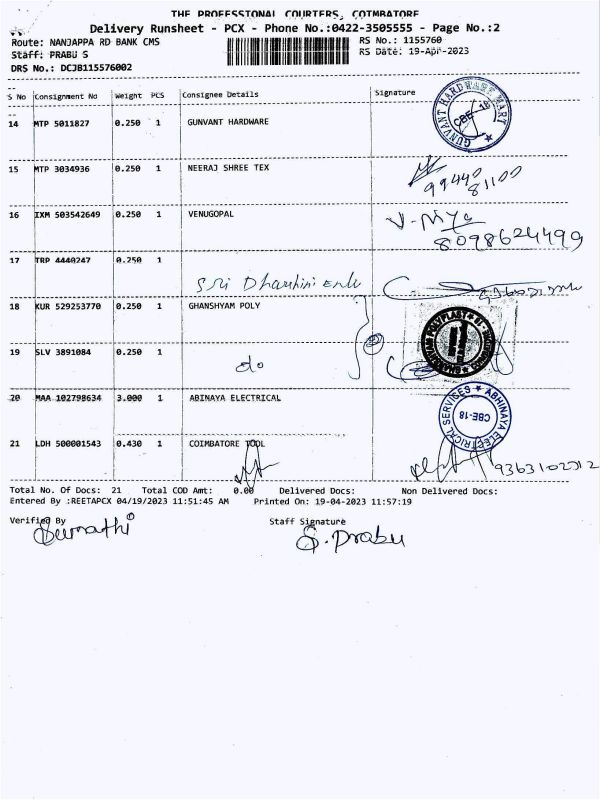 THE PROFESSIONAL COURIERS, COIMBATORE
Delivery Runsheet - PCX - Phone No.:0422-3505555 - Page No.:2
Route: NANJAPPA RD BANK CMS
RS No.: 1155760
Staff: PRABU S
RS Date: 19-Apr-2023
DRS No.: DCJB115576002
S No Consignment No Weight PCS Consignee Details Signature
14 MTP 5011827 0.250 1 GUNVANT HARDWARE
GUNVANT HARDWARE MART CBE - 18
15 MTP 3034936 0.250 1 NEERAJ SHREE TEX
99440
81100
16 IXM 503542649 0.250 1 VENUGOPAL
V. Niya
8098624499
17 TRP 4440247 0.250 1
Sri Dharshini Enter
18 KUR 529253770 0.250 1 GHANSHYAM POLY
GHANSHYAM POLYPLAST
19 SLV 3891084 0.250 1
do
20 MAA 102798634 3.000 1 ABINAYA ELECTRICAL
ABHINAYA ELECTRICAL SERVICES CBE-18
21 LDH 500001543 0.430 1 COIMBATORE TOOL
Total No. Of Docs: 21 Total COD Amt: 0.00 Delivered Docs: Non Delivered Docs:
Entered By :REETAPCX 04/19/2023 11:51:45 AM Printed On: 19-04-2023 11:57:19
Verified By
Staff Signature
Sumathi
S. Prabu